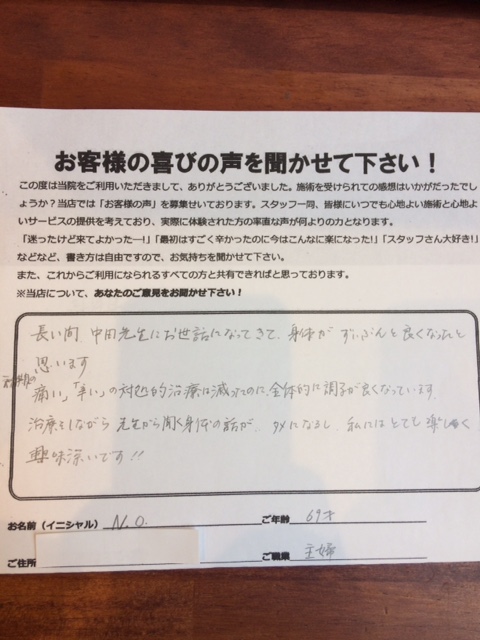 お客様の喜びの声を聞かせて下さい！
この度は当院をご利用いただきまして、ありがとうございました。施術を受けられての感想はいかがだったでし
ょうか？当店では「お客様の声」を募集せいております。スタッフ一同、皆様にいつでも心地よい施術と心地よ
いサービスの提供を考えており、実際に体験された方の率直な声が何よりの力となります。
「迷ったけど来てよかったー!」「最初はすごく辛かったのに今はこんなに楽になった!」「スタッフさん大好き!」
などなど、書き方は自由ですので、お気持ちを聞かせて下さい。
また、これからご利用になられるすべての方と共有できればと思っております。
※当店について、あなたのご意見をお聞かせ下さい！
長い間、中田先生にお世話になってきて、身体が ずいぶんと良くなったと
思います
「痛い」「辛い」の対処的治療は減ったのに、全体的に調子が良くなっています。
治療をしながら 先生から聞く身体の話が、タメになるし、私にはとても楽しく
興味深いです!!
お名前（イニシャル） N.O. ご年齢 69才
ご住所 ご職業 主婦